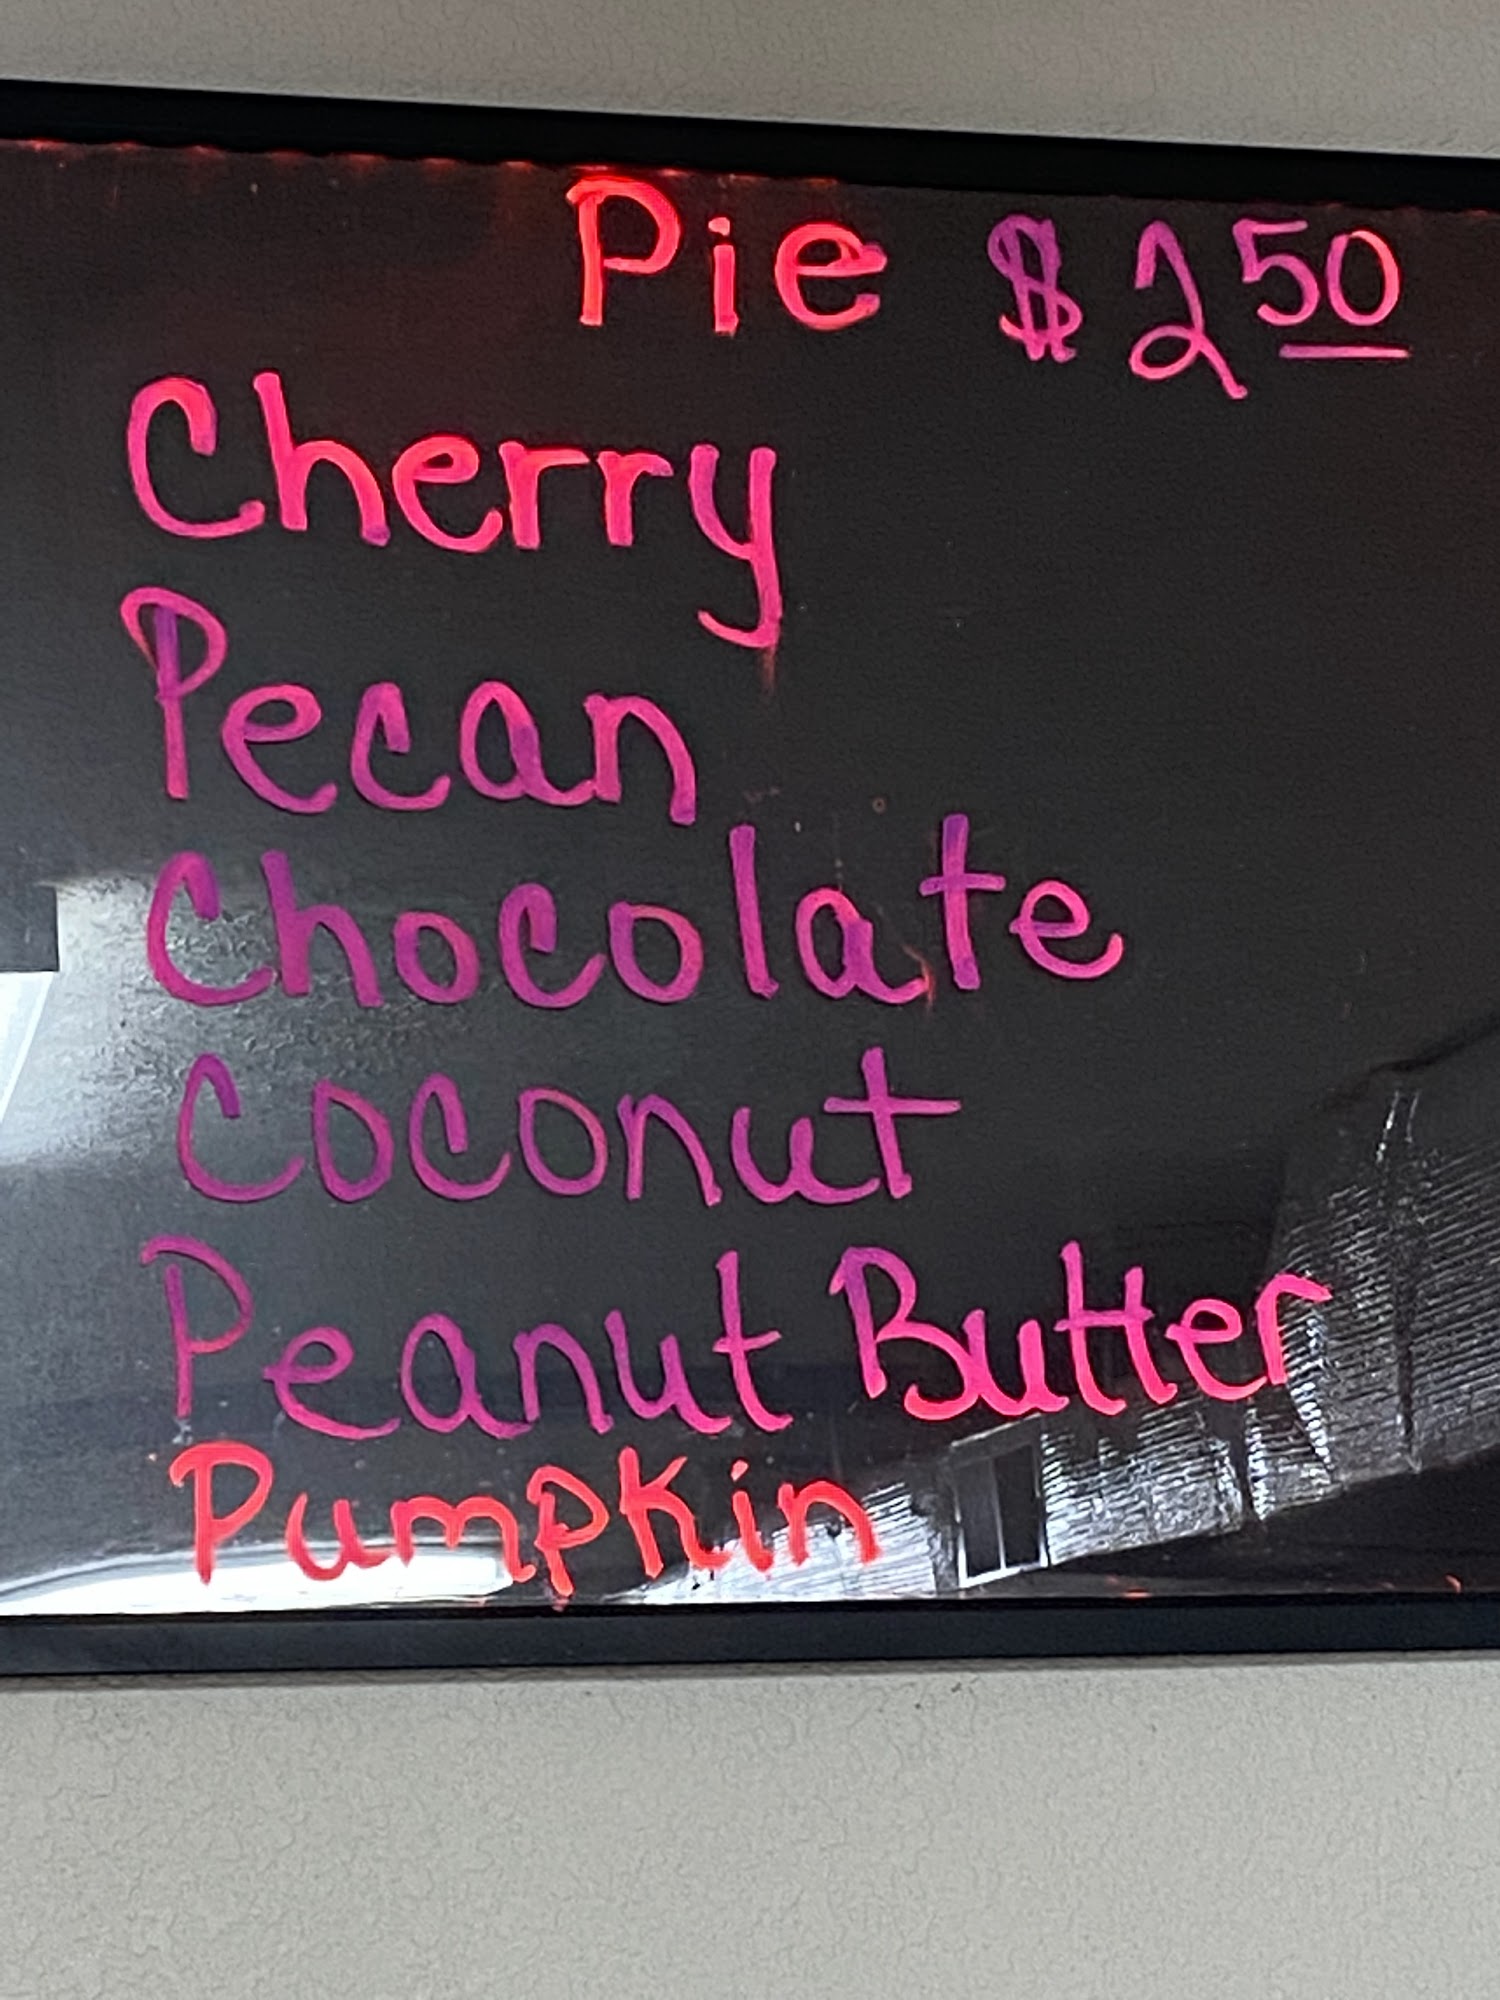 Pie $2 50
Cherry
Pecan
Chocolate
Coconut
Peanut Butter
Pumpkin